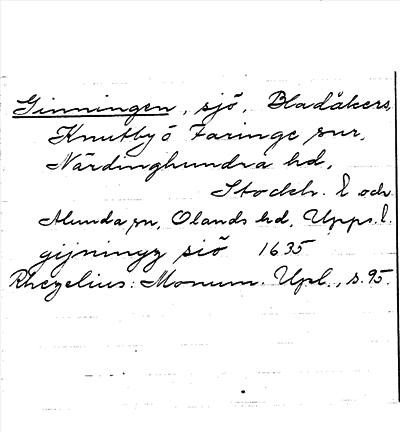 Ginningen, sjö, Bladåkers,
Knutby ö Faringe snr,
Närdinghundra hd,
Stockh. l och
Alunda sn, Olands hd, Upps. l.
gijningz siö 1635
Rhezelius: Monum. Upl., s. 95.